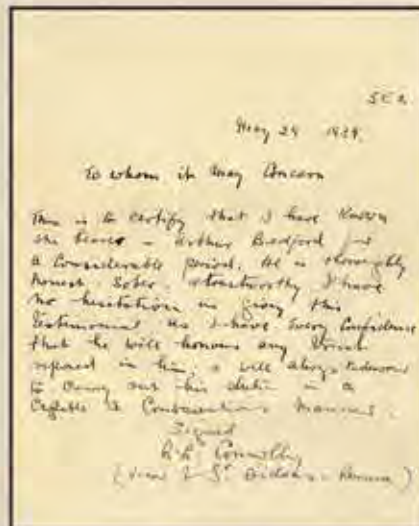 S E 2.
May 29 1929.
To whom it may Concern
This is to certify that I have known
the bearer - Arthur Bedford for
a Considerable period. He is thoroughly
honest, sober, & trustworthy I have
no hesitation in giving this
Testimonial as I have every Confidence
that he will honour any
reposed in him, & will always Endeavour
to Carry out his duties in a
Capable & Conscientious Manner.
Signed
Connolly
(Vicar of St